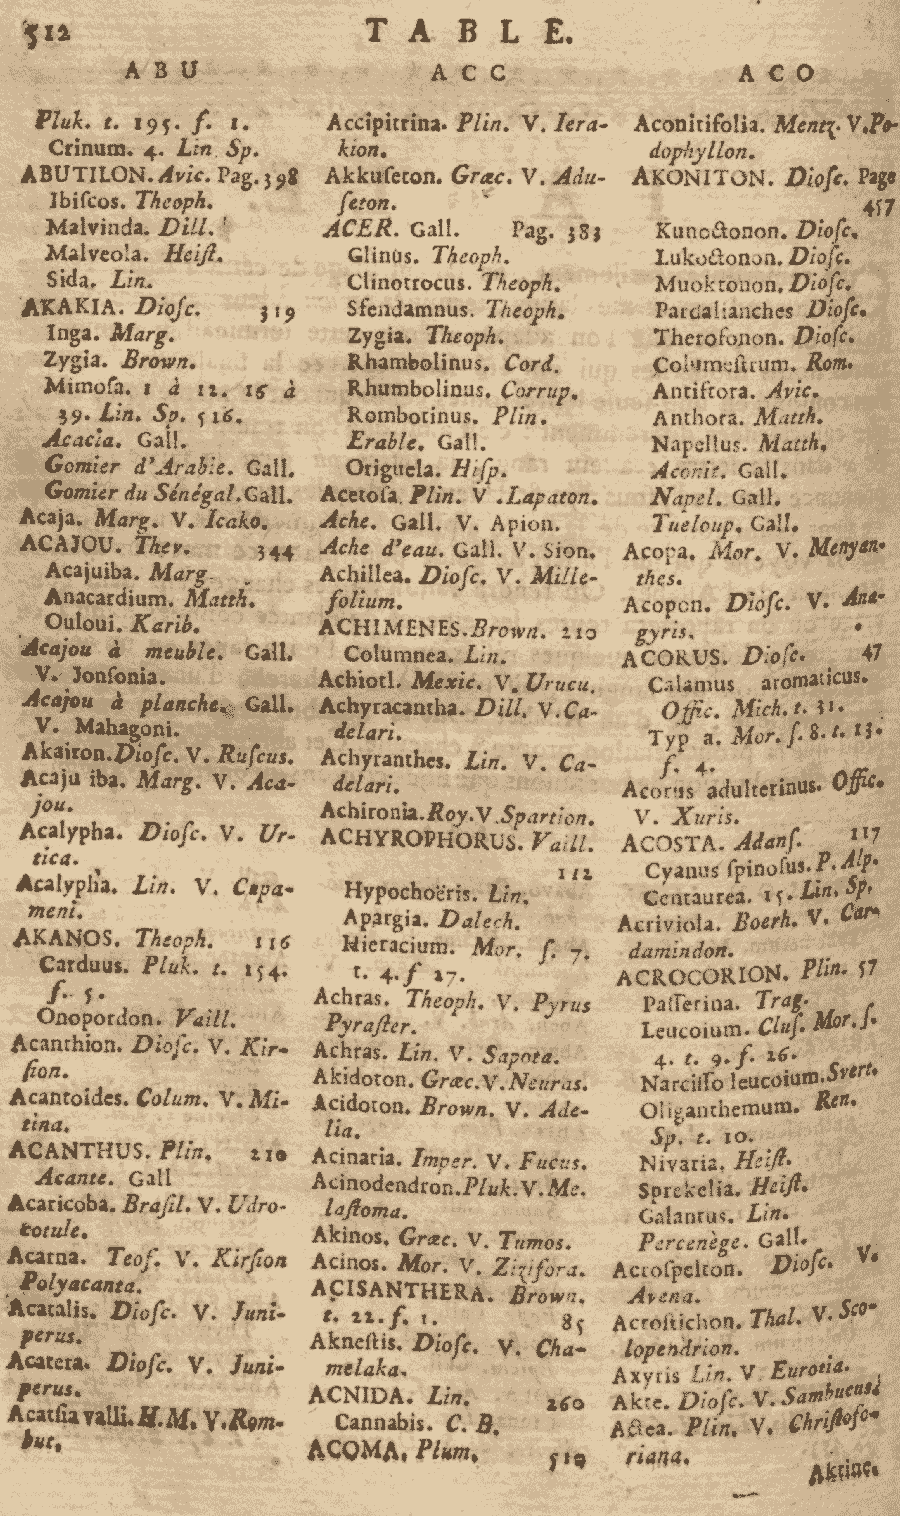 512
TABLE.
ABU
Pluk. t. 195. f. 1.
Crinum. 4. Lin. Sp.
ABUTILON. Avic. Pag. 398
Ibiſcos. Theoph.
Malvinda. Dill.
Malveola. Heiſt.
Sida. Lin.
AKAKIA. Dioſc. 319
Inga. Marg.
Zygia. Brown.
Mimoſa. 1 à 12. 16 à
39. Lin. Sp. 516.
Acacia. Gall.
Gomier d'Arabie. Gall.
Gomier du Sénégal. Gall.
Acaja. Marg. V. Icako.
ACAJOU. Thev. 344
Acajuiba. Marg.
Anacardium. Matth.
Ouloui. Karib.
Acajou à meuble. Gall.
V. Jonſonia.
Acajou à planche. Gall.
V. Mahagoni.
Akairon. Dioſc. V. Ruſcus.
Acaju iba. Marg. V. Aca-
jou.
Acalypha. Dioſc. V. Ur-
tica.
Acalypha. Lin. V. Cupa-
meni.
AKANOS. Theoph. 116
Carduus. Pluk. t. 154.
f. 5.
Onopordon. Vaill.
Acanthion. Dioſc. V. Kir-
ſion.
Acantoides. Colum. V. Mi-
tina.
ACANTHUS. Plin. 210
Acante. Gall
Acaricoba. Braſil. V. Udro-
cotule.
Acarna. Teof. V. Kirſion
Polyacanta.
Acatalis. Dioſc. V. Juni-
perus.
Acatera. Dioſc. V. Juni-
perus.
Acatſia valli. H. M. V. Rom-
but.
ACC
Accipitrina. Plin. V. Iera-
kion.
Akkuſeton. Græc. V. Adu-
ſeton.
ACER. Gall. Pag. 383
Glinus. Theoph.
Clinotrocus. Theoph.
Sfendamnus. Theoph.
Zygia. Theoph.
Rhambolinus. Cord.
Rhumbolinus. Corrup.
Rombotinus. Plin.
Erable. Gall.
Origuela. Hiſp.
Acetoſa. Plin. V. Lapaton.
Ache. Gall. V. Apion.
Ache d'eau. Gall. V. Sion.
Achillea. Dioſc. V. Mille-
folium.
ACHIMENES. Brown. 210
Columnea. Lin.
Achiotl. Mexic. V. Urucu.
Achyracantha. Dill. V. Ca-
delari.
Achyranthes. Lin. V. Ca-
delari.
Achironia. Roy. V. Spartion.
ACHYROPHORUS. Vaill.
112
Hypochoëris. Lin.
Apargia. Dalech.
Hieracium. Mor. ſ. 7.
t. 4. f 27.
Achras. Theoph. V. Pyrus
Pyraſter.
Achras. Lin. V. Sapota.
Akidoton. Græc. V. Neuras.
Acidoton. Brown. V. Ade-
lia.
Acinaria. Imper. V. Fucus.
Acinodendron. Pluk. V. Me.
laſtoma.
Akinos. Græc. V. Tumos.
Acinos. Mor. V. Zizifora.
ACISANTHERA. Brown.
t. 22. f. 1. 85
Akneſtis. Dioſc. V. Cha-
melaka.
ACNIDA. Lin. 260
Cannabis. C. B.
ACOMA. Plum. 510
ACO
Aconitifolia. Mentz. V. Po-
dophyllon.
AKONITON. Dioſc. Page
457
Kunoctonon. Dioſc.
Lukoctonon. Dioſc.
Muoktonon. Dioſc.
Pardalianches Dioſc.
Therofonon. Dioſc.
Columeſtrum. Rom.
Antiftora. Avic.
Anthora. Matth.
Napellus. Matth.
Aconit. Gall.
Napel. Gall.
Tueloup. Gall.
Acopa. Mor. V. Menyan-
thes.
Acopon. Dioſc. V. Ana-
gyris.
ACORUS. Dioſc. 47
Calamus aromaticus.
Offic. Mich. t. 31.
Typ a. Mor. ſ. 8. t. 13.
f. 4.
Acorus adulterinus. Offic.
V. Xuris.
ACOSTA. Adanſ. 117
Cyanus ſpinoſus. P. Alp.
Centaurea. 15. Lin. Sp.
Acriviola. Boerh. V. Car-
damindon.
ACROCORION. Plin. 57
Paſſerina. Trag.
Leucoium. Cluſ. Mor. ſ.
4. t. 9. f. 26.
Narciſſo leucoium. Svert.
Oliganthemum. Ren.
Sp. t. 10.
Nivaria. Heiſt.
Sprekelia. Heiſt.
Galantus. Lin.
Percenège. Gall.
Acroſpelton. Dioſc. V.
Avena.
Acroſtichon. Thal. V. Sco-
lopendrion.
Axyris Lin. V. Eurotia.
Akte. Dioſc. V. Sambucus.
Actea. Plin. V. Chriſtofo-
riana.
Aktine.